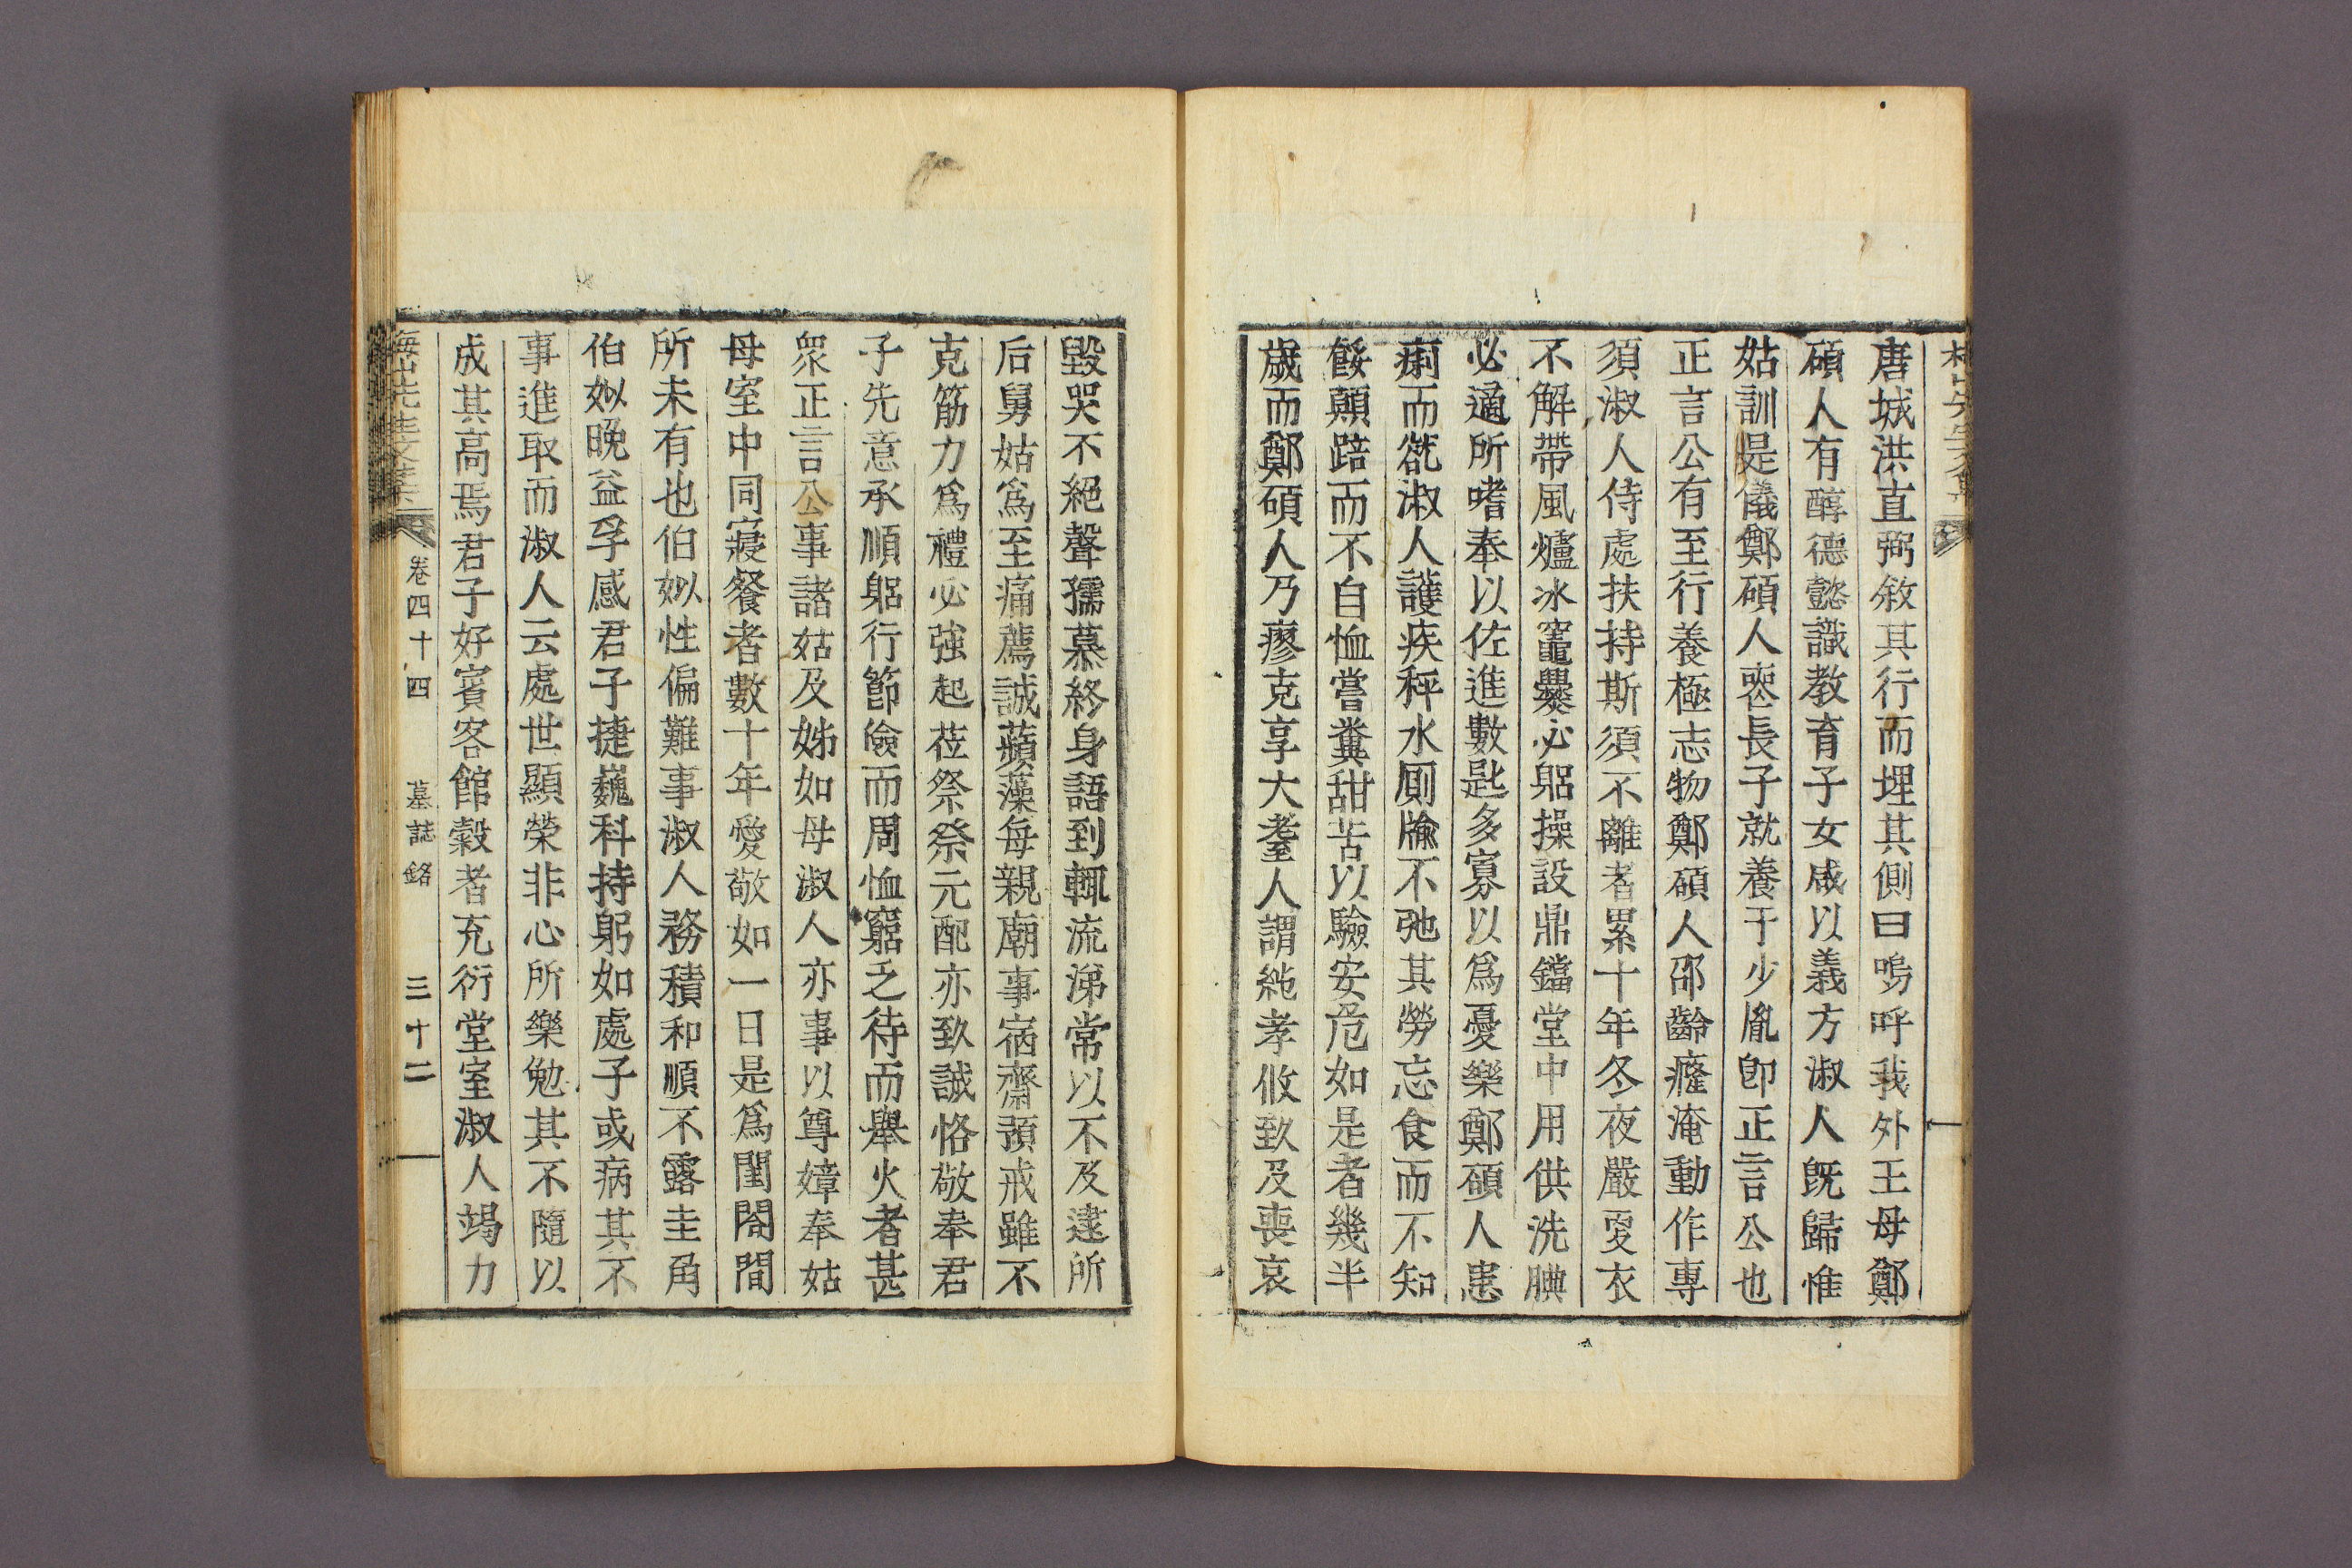 唐城洪直弼敘其行而埋其側曰嗚呼我外王母鄭
碩人有醇德懿識教育子女咸以義方淑人旣歸惟
姑訓是儀鄭碩人喪長子就養于少胤卽正言公也
正言公有至行養極志物鄭碩人邵齡癃淹動作專
須淑人侍處扶持斯須不離者累十年冬夜嚴冱衣
不解帶風爐冰竈爨必躳操設鼎鐺堂中用供洗腆
必適所嗜奉以佐進數匙多寡以爲憂樂鄭碩人患
痢而㱃淑人護疾秤水厠牏不弛其勞忘食而不知
餒顚踣而不自恤嘗糞甜苦以驗安危如是者幾半
歲而鄭碩人乃瘳克享大耋人謂純孝攸致及喪哀
毀哭不絕聲孺慕終身語到輒流涕常以不及逮所
后舅姑爲至痛薦誠蘋藻每親廟事宿齋預戒雖不
克筋力爲禮必強起莅祭祭元配亦致誠恪敬奉君
子先意承順躳行節儉而周恤窮乏待而擧火者甚
衆正言公事諸姑及姊如母淑人亦事以尊嫜奉姑
母室中同寢餐者數十年愛敬如一日是爲閨閤間
所未有也伯姒性偏難事淑人務積和順不露圭角
伯姒晩益孚感君子捷巍科持躬如處子或病其不
事進取而淑人云處世顯榮非心所樂勉其不隨以
成其高焉君子好賓客館穀者充衍堂室淑人竭力
梅山先生文集 卷四十四 墓誌銘 三十二